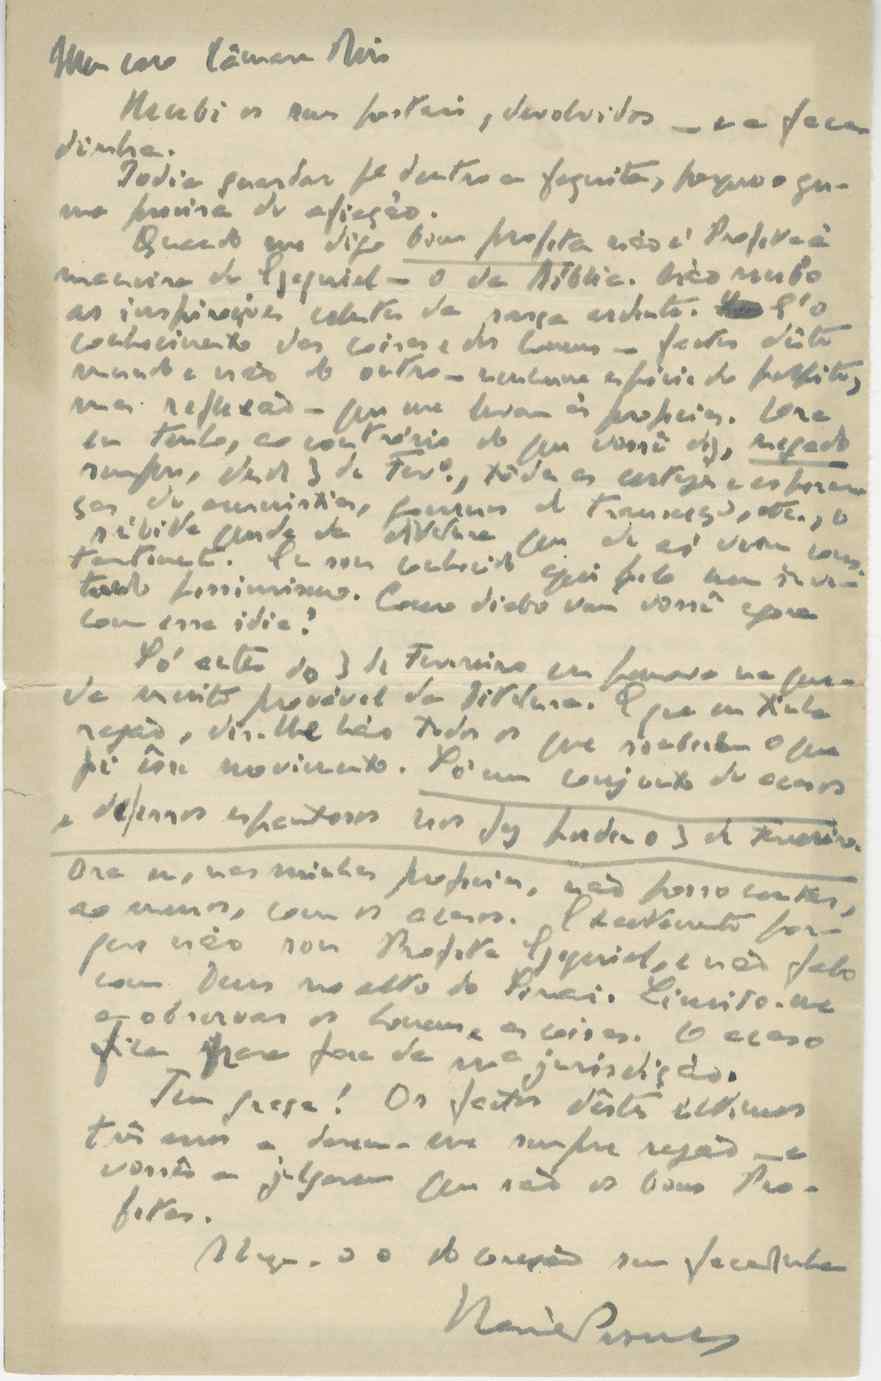 Meu caro Câmara Reis
Recebi os seus postais, devolvidos — e a faca
dinha.
Podia guardar pª dentro a faquita, porque o gu-
me precisa de afiação.
Quando me digo bom profeta não é Profeta à
maneira do Ezequiel — o da Bíblia. Não recebo
as inspirações celestes da sarça ardente. É o
conhecimento das coisas e dos homens — factos dêste
mundo e não do outro — nenhuma espécie de palpites,
mas reflexão — que me levam às profecias. Ora
eu tenho, ao contrário do que você diz, negado
sempre, desde 3 de Fevº., tôdas as certezas e esperan-
ças de amnistias, governos de transição, etc., o
súbita queda da ditadura que de aí vem cons-
tantemente. Eu sou conhecido aqui pelo meu
pessimismo. Como diabo vem você agora
com essa ideia?
Só antes do 3 de Fevereiro eu pensava na que-
da muito provável da Ditadura. E que eu tinha
razão, dir-lhe hão todos os que souberem o que
foi êsse movimento. Só um conjunto de acasos
e de erros espantosos nos fez perder o 3 de Fevereiro.
Ora eu, nas minhas profecias, não posso contar,
ao menos, com os acasos. Exactamente por-
que não sou Profeta Ezequiel, e não falo
com Deus no alto do Sinai. Limito-me
a observar os homens e as coisas. O acaso
fica para fora da mª jurisdição.
Tem graça! Os factos dêstes últimos
três anos a darem-me sempre razão — e
vossês a julgarem que são os bons Pro-
fetas.
do coração sua facadinha